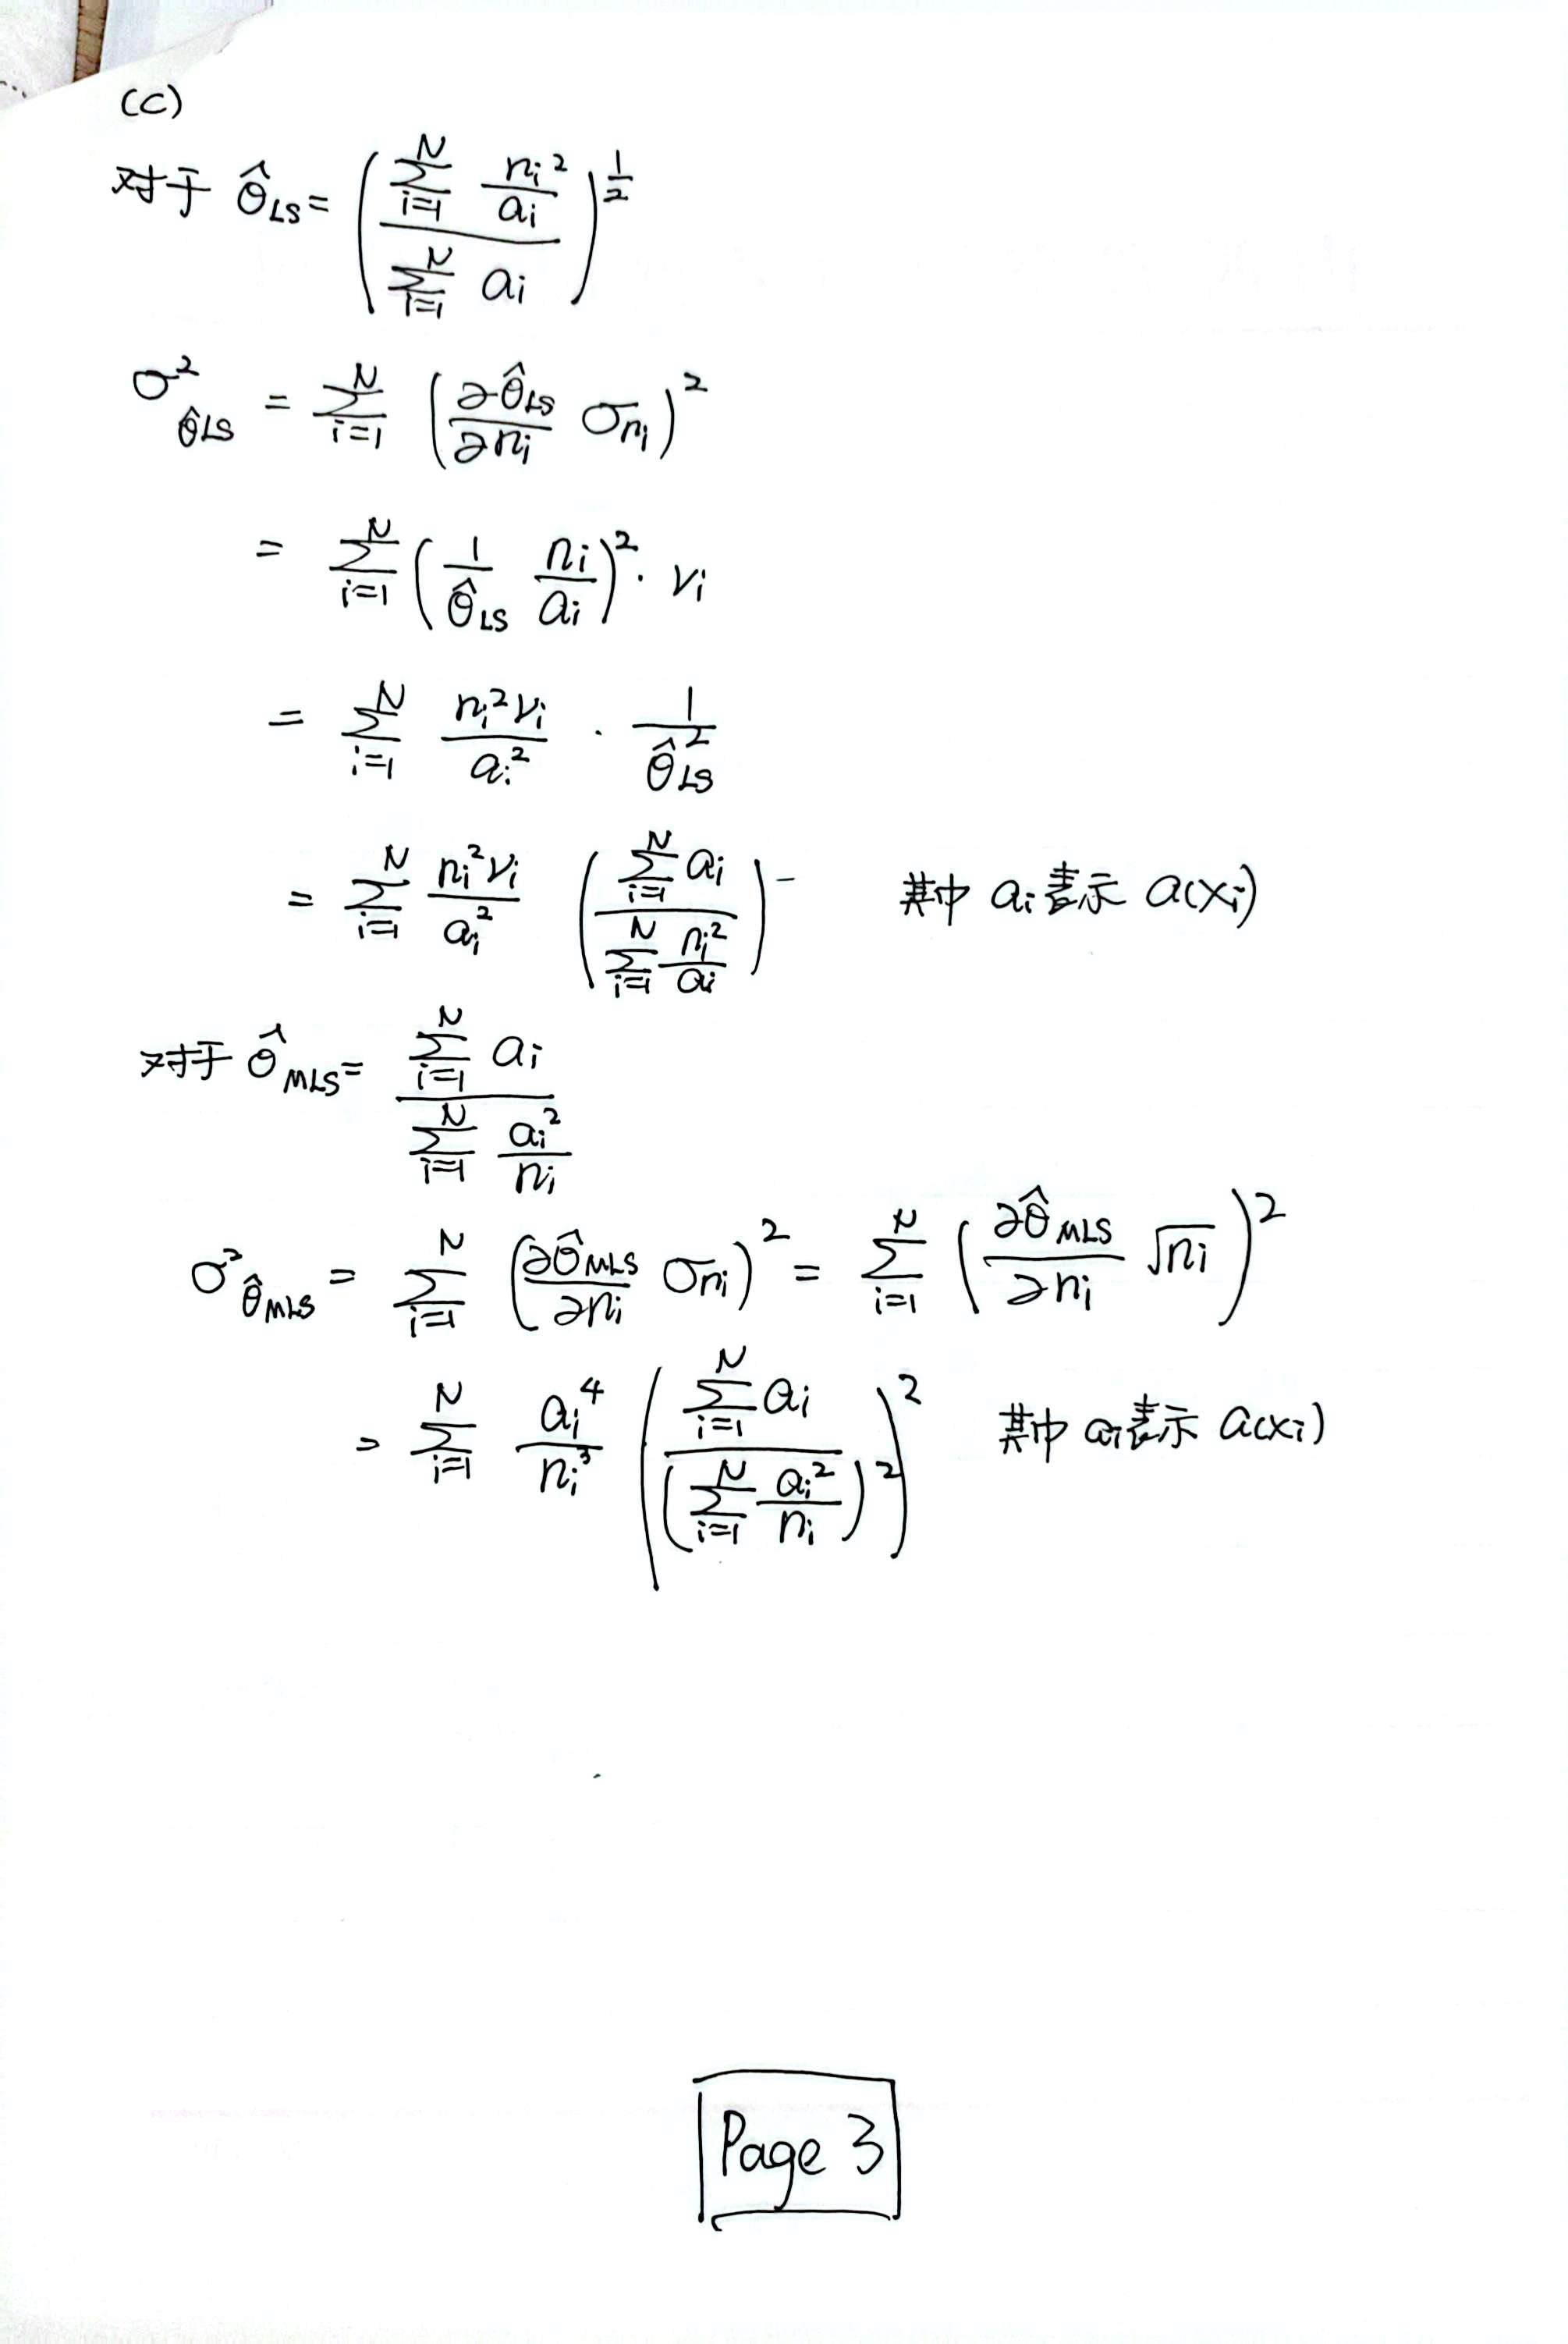 (c)
对于 θ̂_LS = ( (∑_{i=1}^{N} n_i²/a_i) / (∑_{i=1}^{N} a_i) )^{1/2}
σ²_{θ̂LS} = ∑_{i=1}^{N} ( ∂θ̂_LS/∂n_i σ_{n_i} )²
= ∑_{i=1}^{N} ( 1/θ̂_LS n_i/a_i )² · ν_i
= ∑_{i=1}^{N} n_i²ν_i/a_i² · 1/θ̂²_LS
= ∑_{i=1}^{N} n_i²ν_i/a_i² ( (∑_{i=1}^{N} a_i) / (∑_{i=1}^{N} n_i²/a_i) )⁻ 其中 a_i 表示 a(x_i)
对于 θ̂_MLS = (∑_{i=1}^{N} a_i) / (∑_{i=1}^{N} a_i²/n_i)
σ²_{θ̂MLS} = ∑_{i=1}^{N} ( ∂θ̂_MLS/∂n_i σ_{n_i} )² = ∑_{i=1}^{N} ( ∂θ̂_MLS/∂n_i √n_i )²
= ∑_{i=1}^{N} a_i⁴/n_i³ ( (∑_{i=1}^{N} a_i) / (∑_{i=1}^{N} a_i²/n_i)² )² 其中 a_i 表示 a(x_i)
Page 3